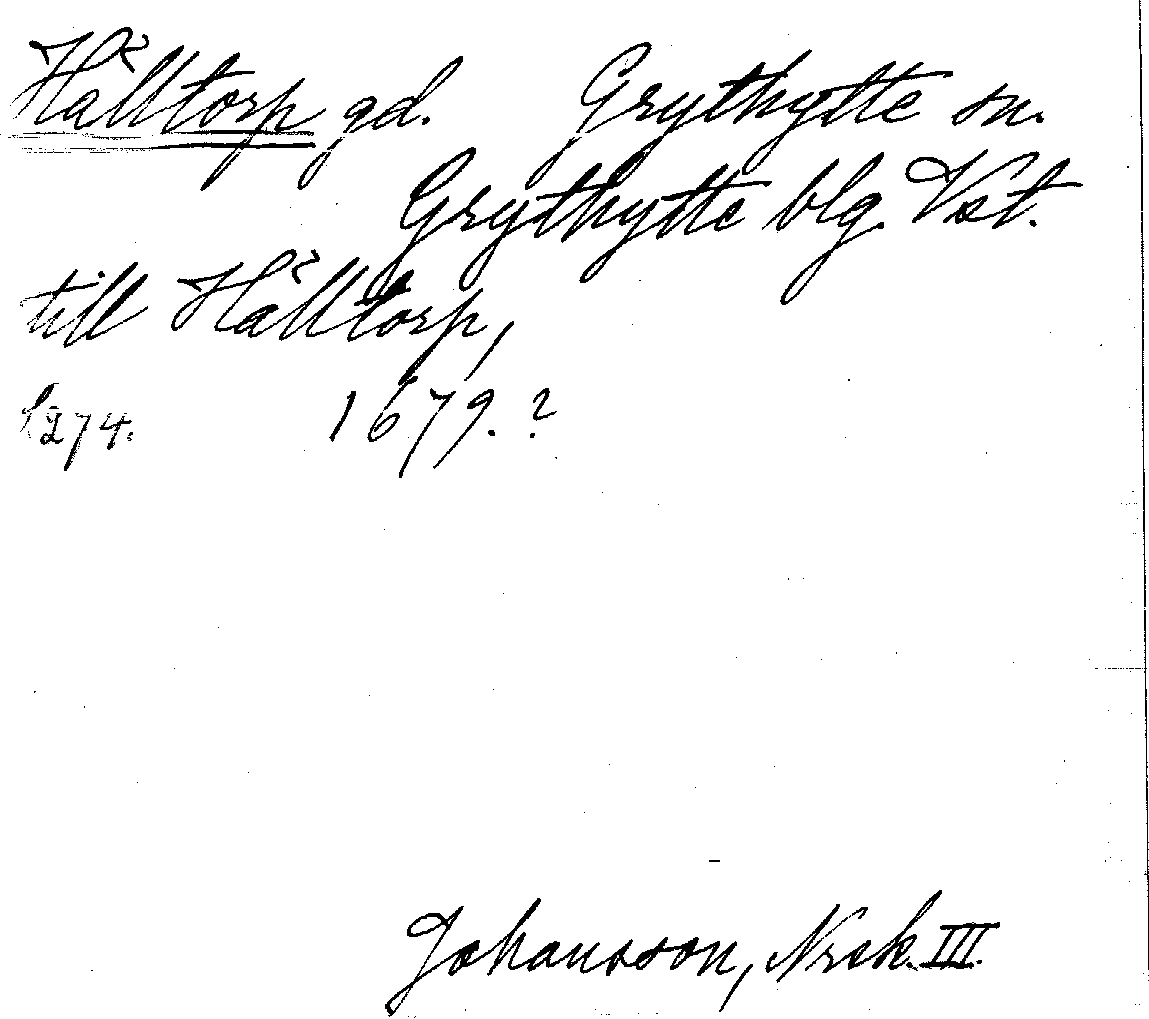 Hålltorp gd. Grythytte sn.
Grythytte blg. Vst.
till Hålltorp,
s 274. 1679.?
Johansson, Nrsk. III.